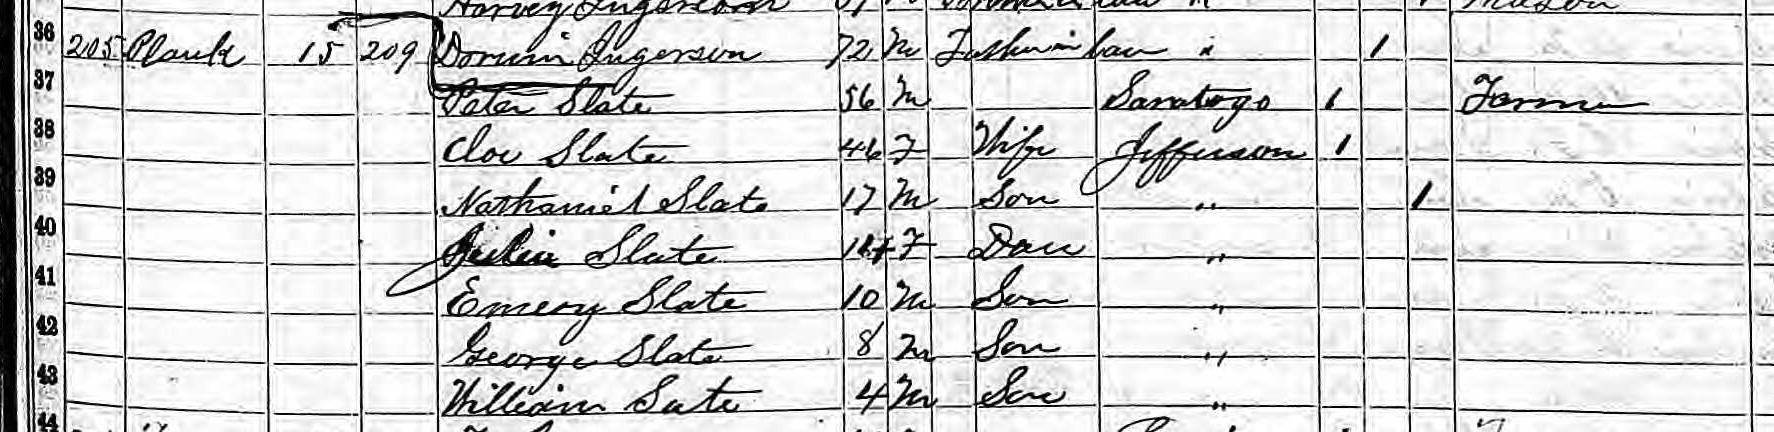 Harvey Ingerson
36 205 Plank 15 209 Dorwin Ingerson 72 M Father in law " 1
37 Peter Slate 56 M Saratogo 1 Farmer
38 Cloe Slate 46 F Wife Jefferson 1
39 Nathaniel Slate 17 M Son " 1
40 Julia Slate 14 F Dau "
41 Emery Slate 10 M Son "
42 George Slate 8 M Son "
43 William Sate 4 M Son "
44